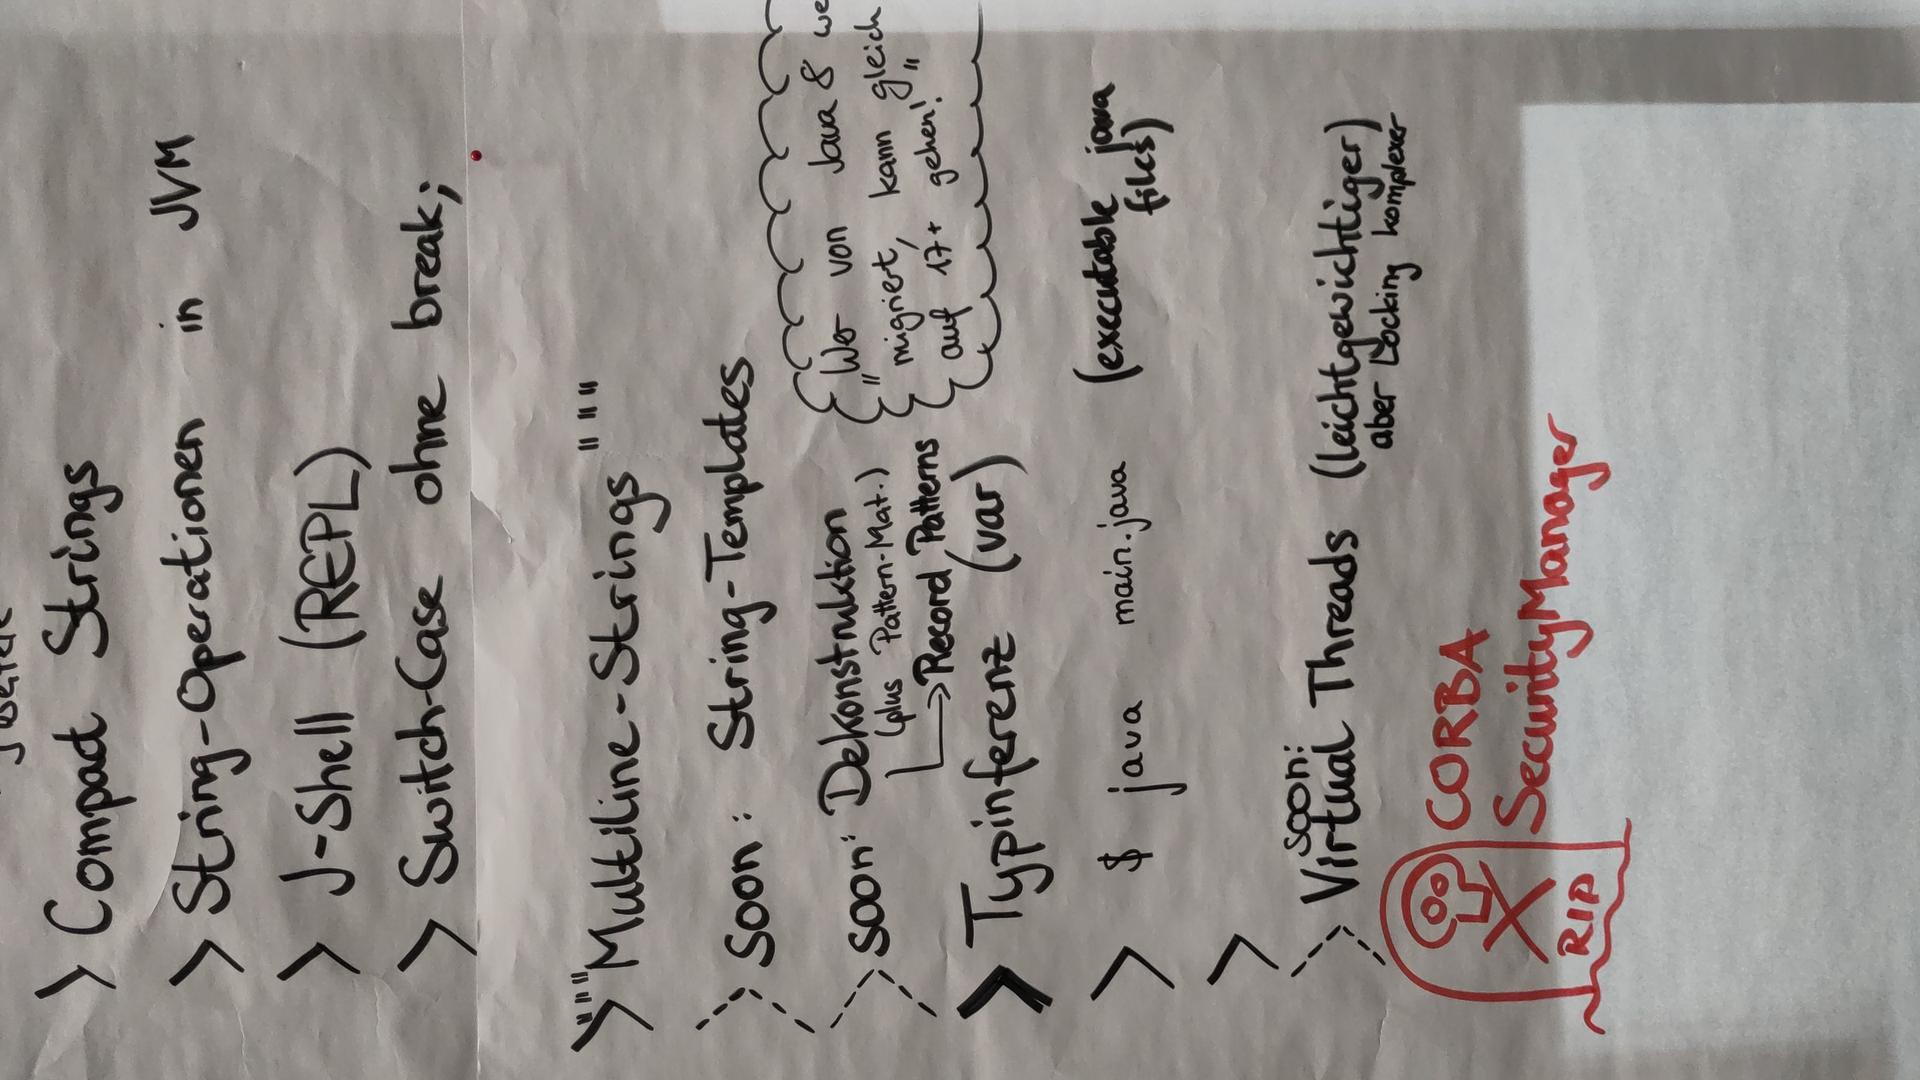 > Compact Strings
> String-Operationen in JVM
> J-Shell (REPL)
> Switch-Case ohne break;
> """Multiline-Strings """
> Soon: String-Templates
> Soon: Dekonstruktion
(plus Pattern-Mat.)
→ Record Patterns
"Wer von Java 8
migriert, kann gleich
auf 17+ gehen!"
> Typinferenz (var)
> $ java main.java (executable java
files)
>
soon:
> Virtual Threads (leichtgewichtiger)
aber Locking komplexer
RIP
CORBA
SecurityManager